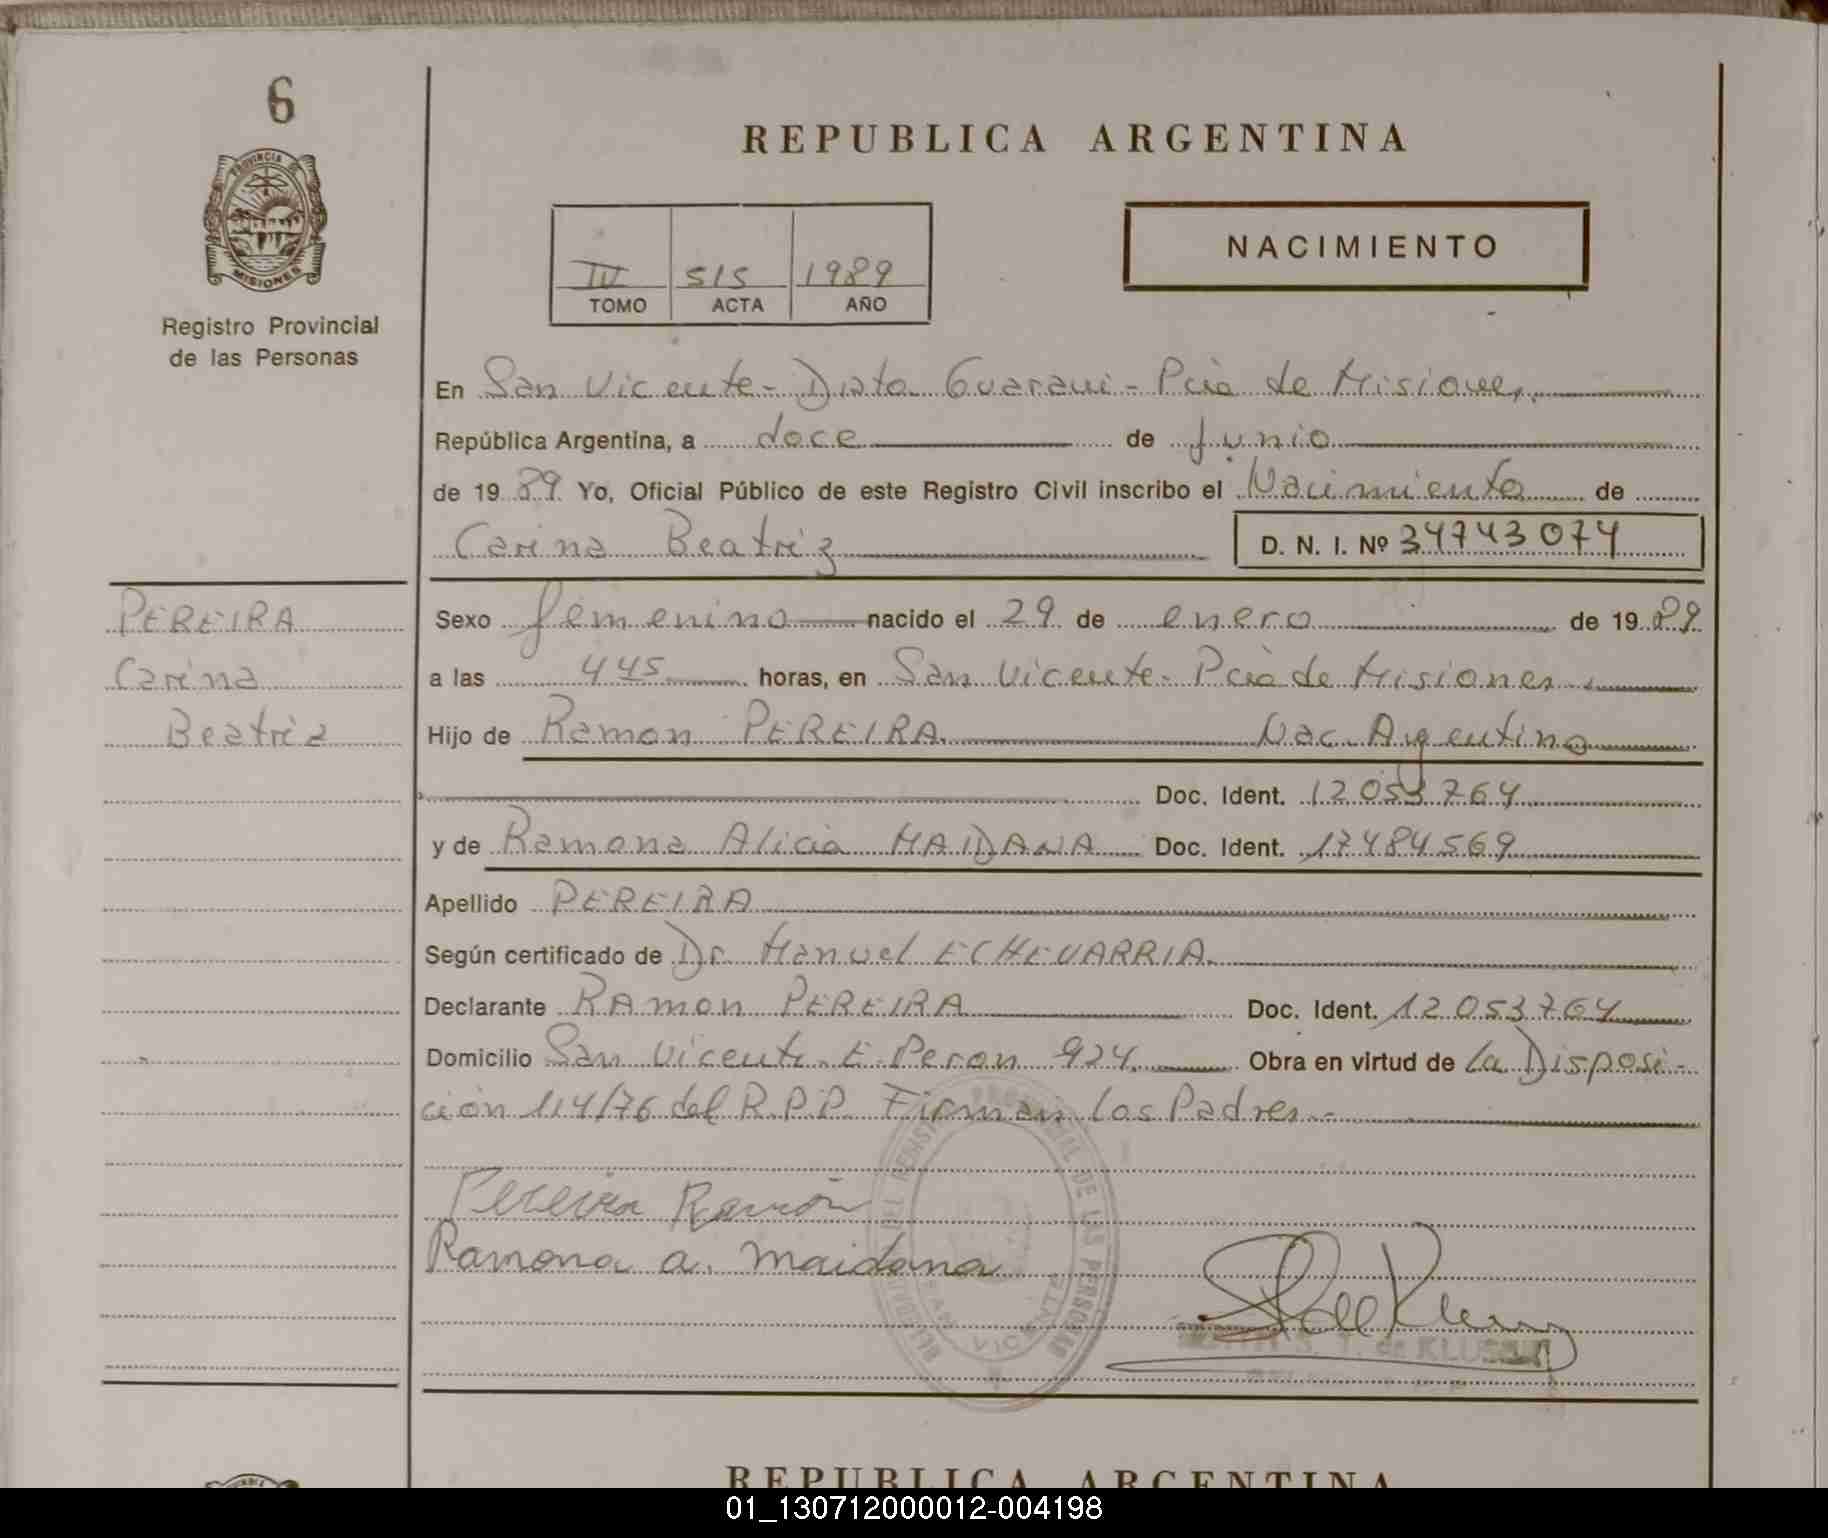 6
PROVINCIA DE
MISIONES
Registro Provincial
de las Personas
REPUBLICA ARGENTINA
NACIMIENTO
IV 515 1989
TOMO ACTA AÑO
En San Vicente - Dpto Guarani - Pcia de Misiones,
República Argentina, a doce de junio
de 19 89 Yo, Oficial Público de este Registro Civil inscribo el Nacimiento de
Carina Beatriz D. N. I. Nº 34743074
PEREIRA
Carina
Beatriz
Sexo femenino nacido el 29 de enero de 19 89
a las 445 horas, en San Vicente - Pcia de Misiones
Hijo de Ramon PEREIRA Nac. Argentino
Doc. Ident. 12053764
y de Ramona Alicia MAIDANA Doc. Ident. 17484569
Apellido PEREIRA
Según certificado de Dr. Manuel ECHEVARRIA
Declarante RAMON PEREIRA Doc. Ident. 12053764
Domicilio San Vicente. E. Peron 924 Obra en virtud de la Disposi-
ción 114/76 del R.P.P. Firman los Padres.-
Pereira Ramón
Ramona a. maidana
PROVINCIAL DE LAS PERSONAS
SAN VICENTE
S. T. de KLUSE
REPUBLICA ARGENTINA
01_130712000012-004198